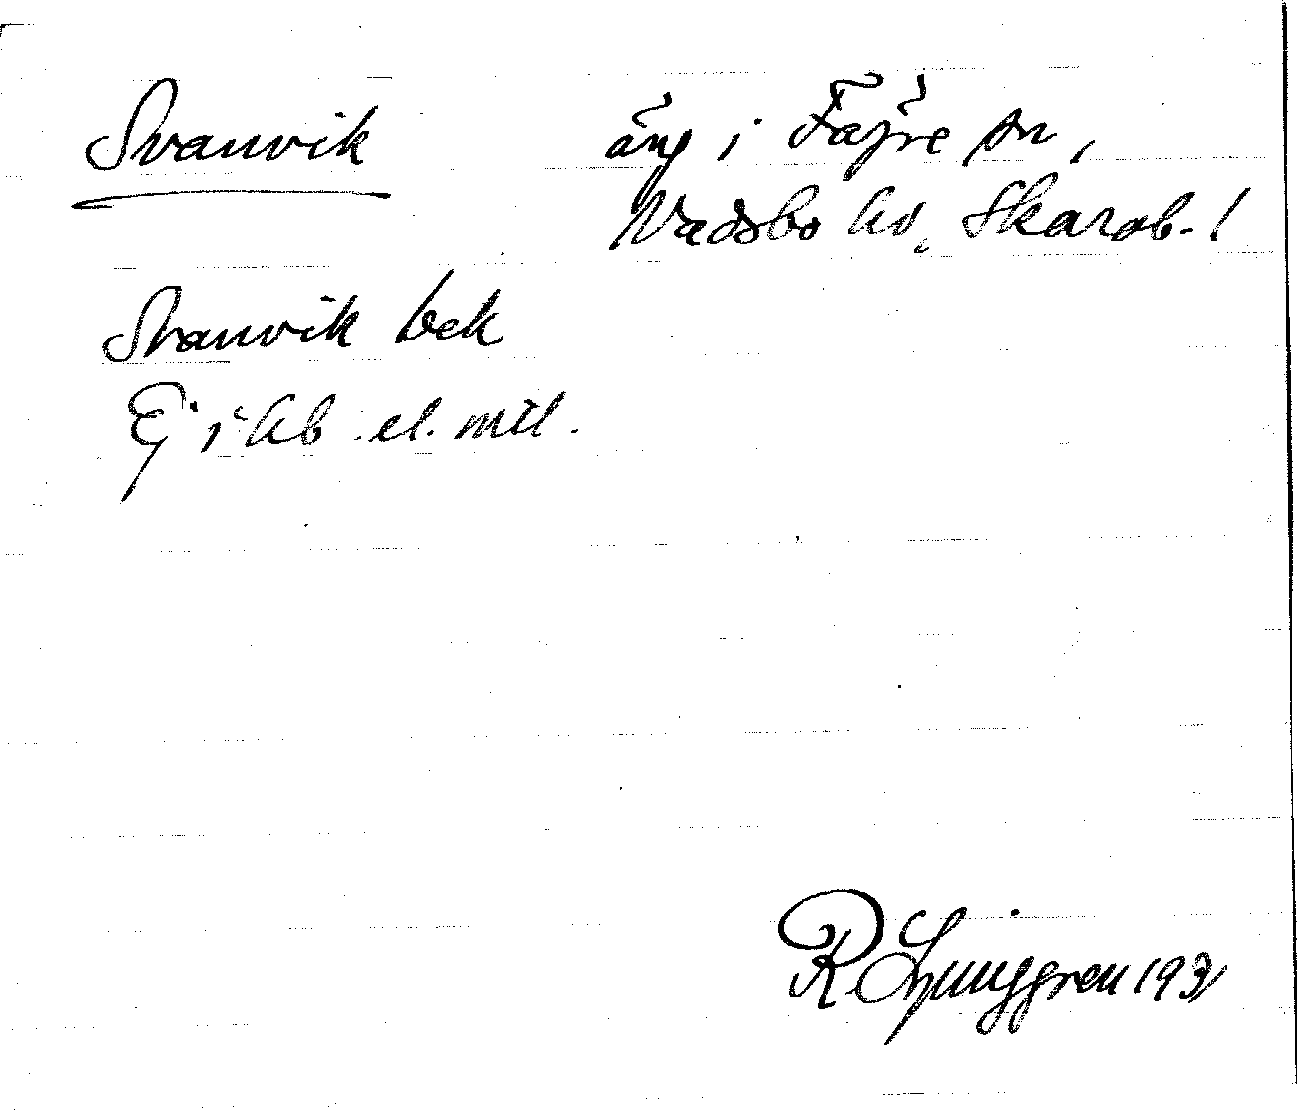 Svanvik äng i Fägre sn,
Vadsbo hd, Skarab. l
Svanvik bek
Ej i hb el. mtl.
R Ljunggren 1931